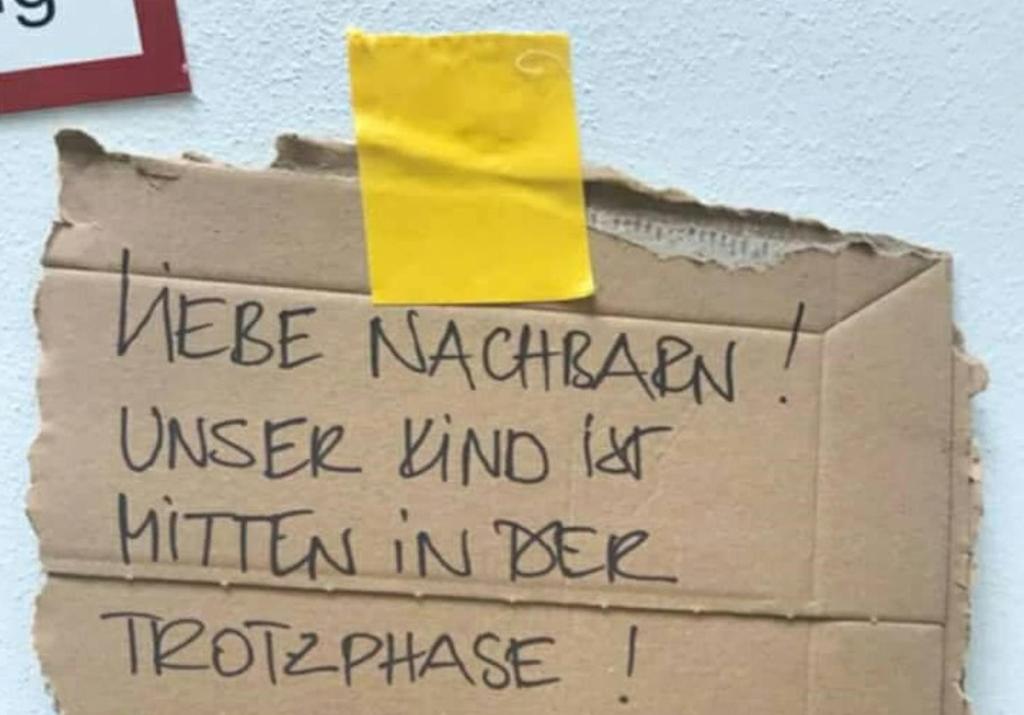 LIEBE NACHBARN!
UNSER KIND IST
MITTEN IN DER
TROTZPHASE!